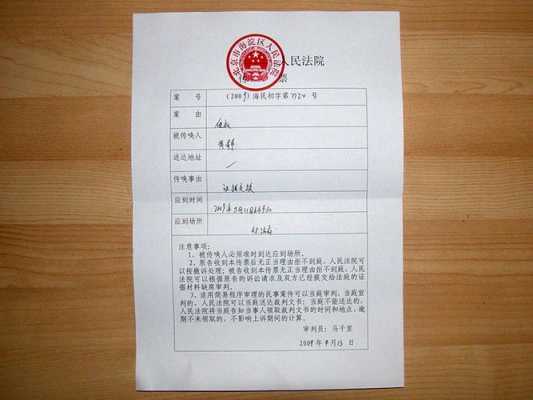 北京市海淀区人民法院
人民法院
票
案 号 (2009)海民初字第7920号
案 由
被传唤人
送达地址
传唤事由 证据交换
应到时间 2009年
应到场所 法庭
注意事项:
1、被传唤人必须准时到达应到场所。
2、原告收到本传票后无正当理由拒不到庭,人民法院可
以按撤诉处理;被告收到本传票后无正当理由拒不到庭,人民法
院可以根据原告的诉讼请求及双方已经提交给法庭的证
据材料缺席审判。
3、适用简易程序审理的民事案件可以当庭审判。当庭宣
判的,人民法院可以当庭送达裁判文书;当庭不能送达的,
人民法院将当庭告知当事人领取裁判文书的时间和地点,逾
期不来领取的,不影响上诉期间的计算。
审判员:马千里
2009年 月13日